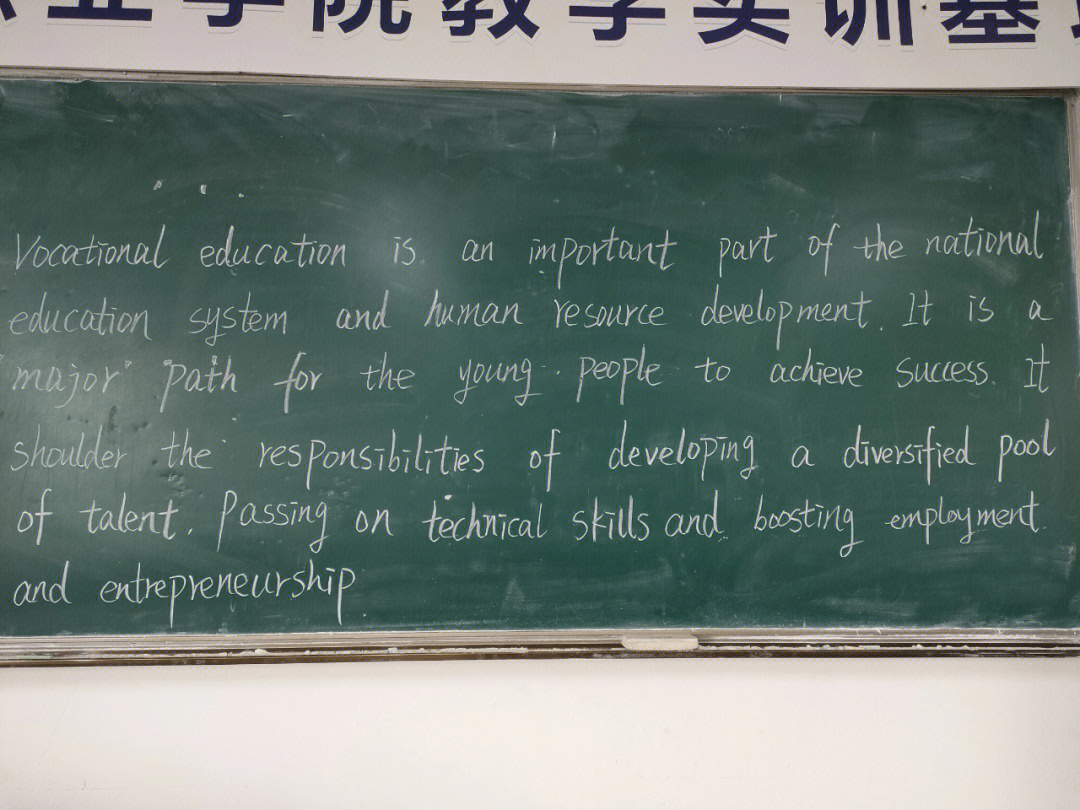 业学院教学实训基
Vocational education is an important part of the national
education system and human resource development. It is a
major path for the young people to achieve success. It
shoulder the responsibilities of developing a diversified pool
of talent. Passing on technical skills and boosting employment
and entrepreneurship